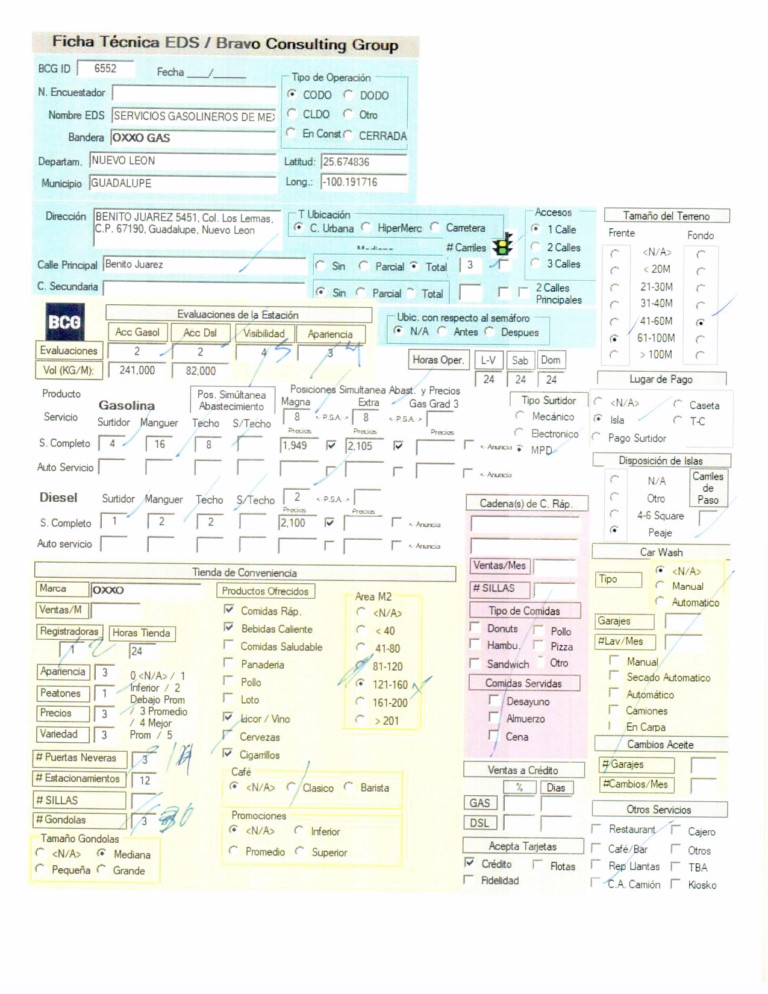 Ficha Técnica EDS / Bravo Consulting Group
BCG ID 6552 Fecha ___/_____
Tipo de Operación
N. Encuestador
CODO DODO
Nombre EDS SERVICIOS GASOLINEROS DE MEX
CLDO Otro
Bandera OXXO GAS
En Const CERRADA
Departam. NUEVO LEON Latitud: 25.674836
Municipio GUADALUPE Long.: -100.191716
Dirección BENITO JUAREZ 5451, Col. Los Lermas,
C.P. 67190, Guadalupe, Nuevo Leon
T Ubicación
C. Urbana HiperMerc Carretera
# Carriles
Calle Principal Benito Juarez
Sin Parcial Total 3
C. Secundaria
Sin Parcial Total
Accesos
1 Calle
2 Calles
3 Calles
2 Calles
Principales
Tamaño del Terreno
Frente Fondo
<N/A>
< 20M
21-30M
31-40M
41-60M
61-100M
> 100M
BCG
Evaluaciones de la Estación
Acc Gasol Acc Dsl Visibilidad Apariencia
Evaluaciones 2 2 4 5 3 4
Vol (KG/M): 241,000 82,000
Ubic. con respecto al semáforo
N/A Antes Despues
Horas Oper. L-V Sab Dom
24 24 24
Lugar de Pago
<N/A> Caseta
Isla T-C
Pago Surtidor
Producto
Servicio
Gasolina
Pos. Simúltanea
Abastecimiento
Posiciones Simultanea Abast. y Precios
Magna Extra Gas Grad 3
Surtidor Manguer Techo S/Techo
8 < P.S.A. > 8 < P.S.A. >
Precios Precios Precios
S. Completo 4 16 8 1,949 2,105 < Anuncia
Auto Servicio < Anuncia
Tipo Surtidor
Mecánico
Electronico
MPD
Disposición de Islas
N/A
Otro
4-6 Square
Peaje
Carriles
de
Paso
Diesel Surtidor Manguer Techo S/Techo 2 < P.S.A. >
Precios Precios
S. Completo 1 2 2 2,100 < Anuncia
Auto servicio < Anuncia
Cadena(s) de C. Ráp.
Ventas/Mes
# SILLAS
Tipo de Comidas
Donuts Pollo
Hambu. Pizza
Sandwich Otro
Comidas Servidas
Desayuno
Almuerzo
Cena
Car Wash
Tipo
<N/A>
Manual
Automatico
Garajes
#Lav/Mes
Manual
Secado Automatico
Automático
Camiones
En Carpa
Cambios Aceite
# Garajes
#Cambios/Mes
Tienda de Conveniencia
Marca OXXO
Ventas/M
Registradoras Horas Tienda
1 2 24
Apariencia 3
Peatones 1
Precios 3
Variedad 3
0 <N/A> / 1
Inferior / 2
Debajo Prom
/ 3 Promedio
/ 4 Mejor
Prom / 5
# Puertas Neveras 3
# Estacionamientos 12
# SILLAS
# Gondolas 3
Tamaño Gondolas
<N/A> Mediana
Pequeña Grande
Productos Ofrecidos
Comidas Ráp.
Bebidas Caliente
Comidas Saludable
Panaderia
Pollo
Loto
Licor / Vino
Cervezas
Cigarrillos
Area M2
<N/A>
< 40
41-80
81-120
121-160
161-200
> 201
Café
<N/A> Clasico Barista
Promociones
<N/A> Inferior
Promedio Superior
Ventas a Crédito
% Dias
GAS
DSL
Acepta Tarjetas
Crédito Flotas
Fidelidad
Otros Servicios
Restaurant Cajero
Café/Bar Otros
Rep Llantas TBA
C.A. Camión Kiosko